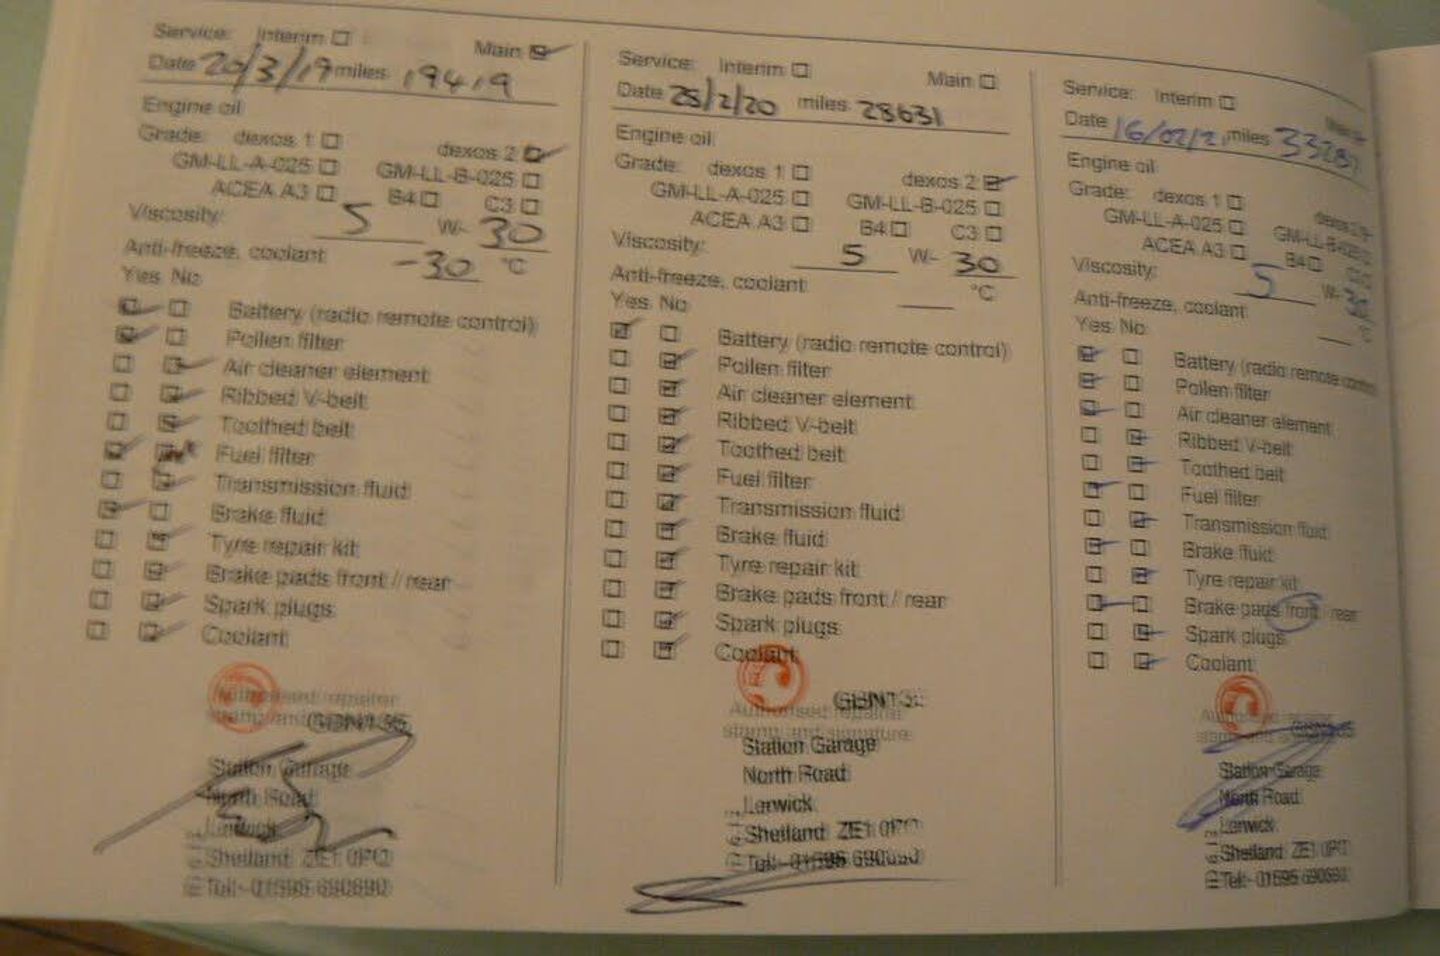 Service: Interim ☐ Main ☑
Date 20/3/19 miles 19419
Engine oil
Grade: dexos 1 ☐ dexos 2 ☑
GM-LL-A-025 ☐ GM-LL-B-025 ☐
ACEA A3 ☐ B4 ☐ C3 ☐
Viscosity: 5 W- 30
Anti-freeze, coolant -30 °C
Yes No
☑ ☐ Battery (radio remote control)
☑ ☐ Pollen filter
☐ ☑ Air cleaner element
☐ ☑ Ribbed V-belt
☐ ☑ Toothed belt
☑ Fuel filter
☐ ☑ Transmission fluid
☑ ☐ Brake fluid
☐ ☑ Tyre repair kit
☐ ☑ Brake pads front / rear
☐ ☑ Spark plugs
☐ ☑ Coolant
Authorised repairer
stamp and
Station Garage
North Road
Lerwick
Shetland ZE1 0PQ
Tel:- 01595 690890
Service: Interim ☐ Main ☐
Date 28/2/20 miles 28631
Engine oil
Grade: dexos 1 ☐ dexos 2 ☑
GM-LL-A-025 ☐ GM-LL-B-025 ☐
ACEA A3 ☐ B4 ☐ C3 ☐
Viscosity: 5 W- 30
Anti-freeze, coolant °C
Yes No
☑ ☐ Battery (radio remote control)
☐ ☑ Pollen filter
☐ ☑ Air cleaner element
☐ ☑ Ribbed V-belt
☐ ☑ Toothed belt
☐ ☑ Fuel filter
☐ ☑ Transmission fluid
☐ ☑ Brake fluid
☐ ☑ Tyre repair kit
☐ ☑ Brake pads front / rear
☐ ☑ Spark plugs
☐ ☑ Coolant
Authorised repairer
stamp and signature
Station Garage
North Road
Lerwick
Shetland ZE1 0PQ
Tel:- 01595
Service: Interim ☐
Date 16/02/21 miles
Engine oil
Grade: dexos 1 ☐ dexos 2
GM-LL-A-025 ☐ GM-LL-B-025
ACEA A3 ☐ B4 ☐
Viscosity: 5 W- 30
Anti-freeze, coolant °C
Yes No
☑ ☐ Battery (radio remote control
☑ ☐ Pollen filter
☑ ☐ Air cleaner element
☐ ☑ Ribbed V-belt
☐ ☑ Toothed belt
☑ ☐ Fuel filter
☐ ☑ Transmission fluid
☑ ☐ Brake fluid
☐ ☑ Tyre repair kit
☑ ☐ Brake pads front / rear
☐ ☑ Spark plugs
☐ ☑ Coolant
Station Garage
North Road
Lerwick
Shetland ZE1 0PQ
Tel:- 01595 690890